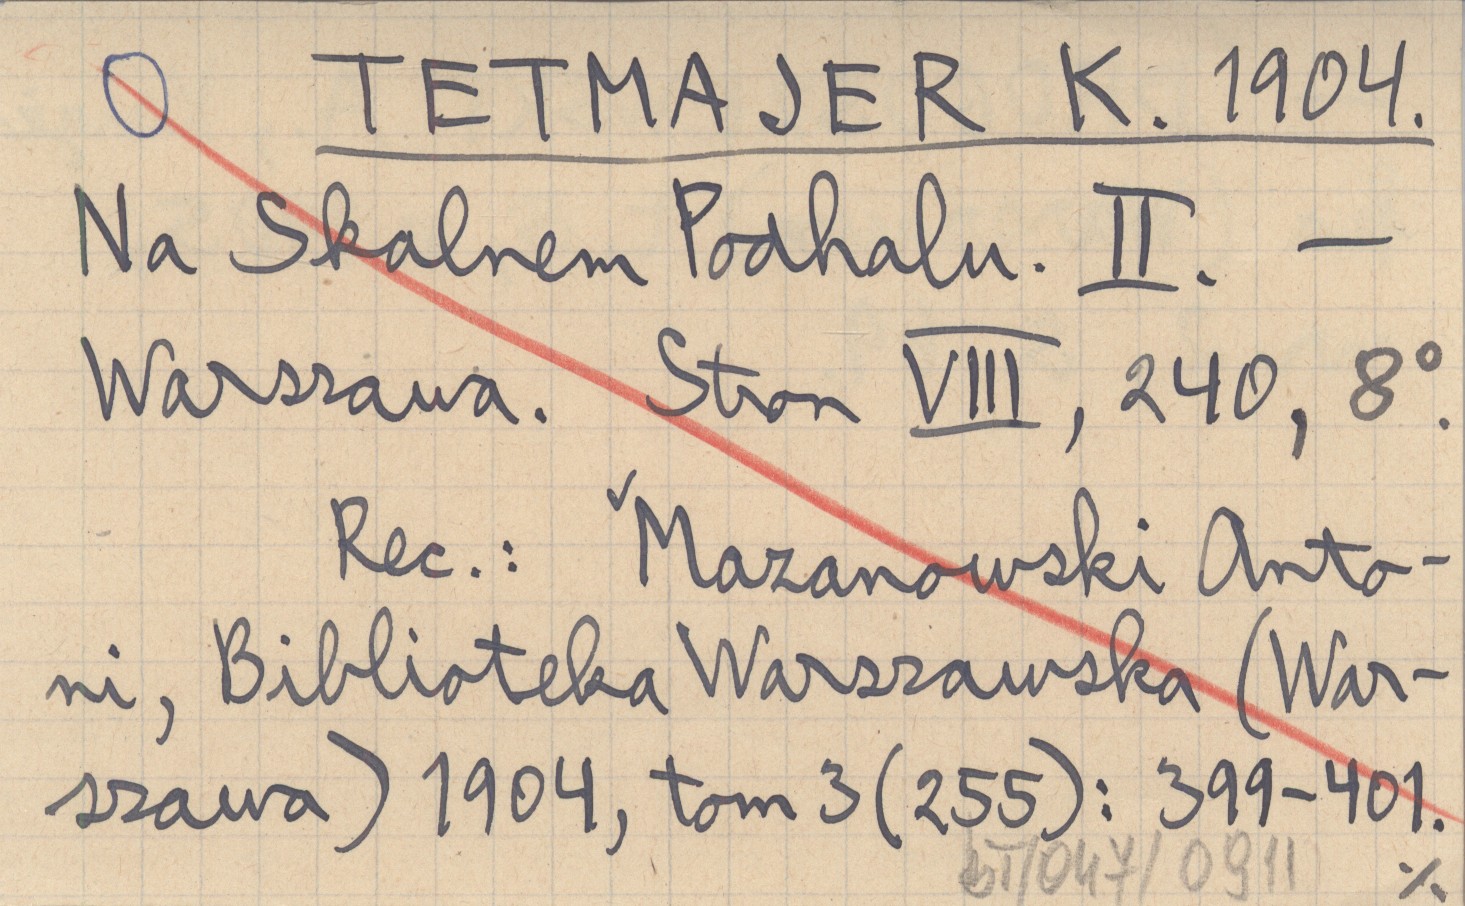 TETMAJER K. 1904.
Na Skalnem Podhalu. II. —
Warszawa. Stron VIII, 240, 8°.
Rec.: Mazanowski Anto-
ni, Biblioteka Warszawska (War-
szawa) 1904, tom 3 (255): 399-401.
/047/0911
./.